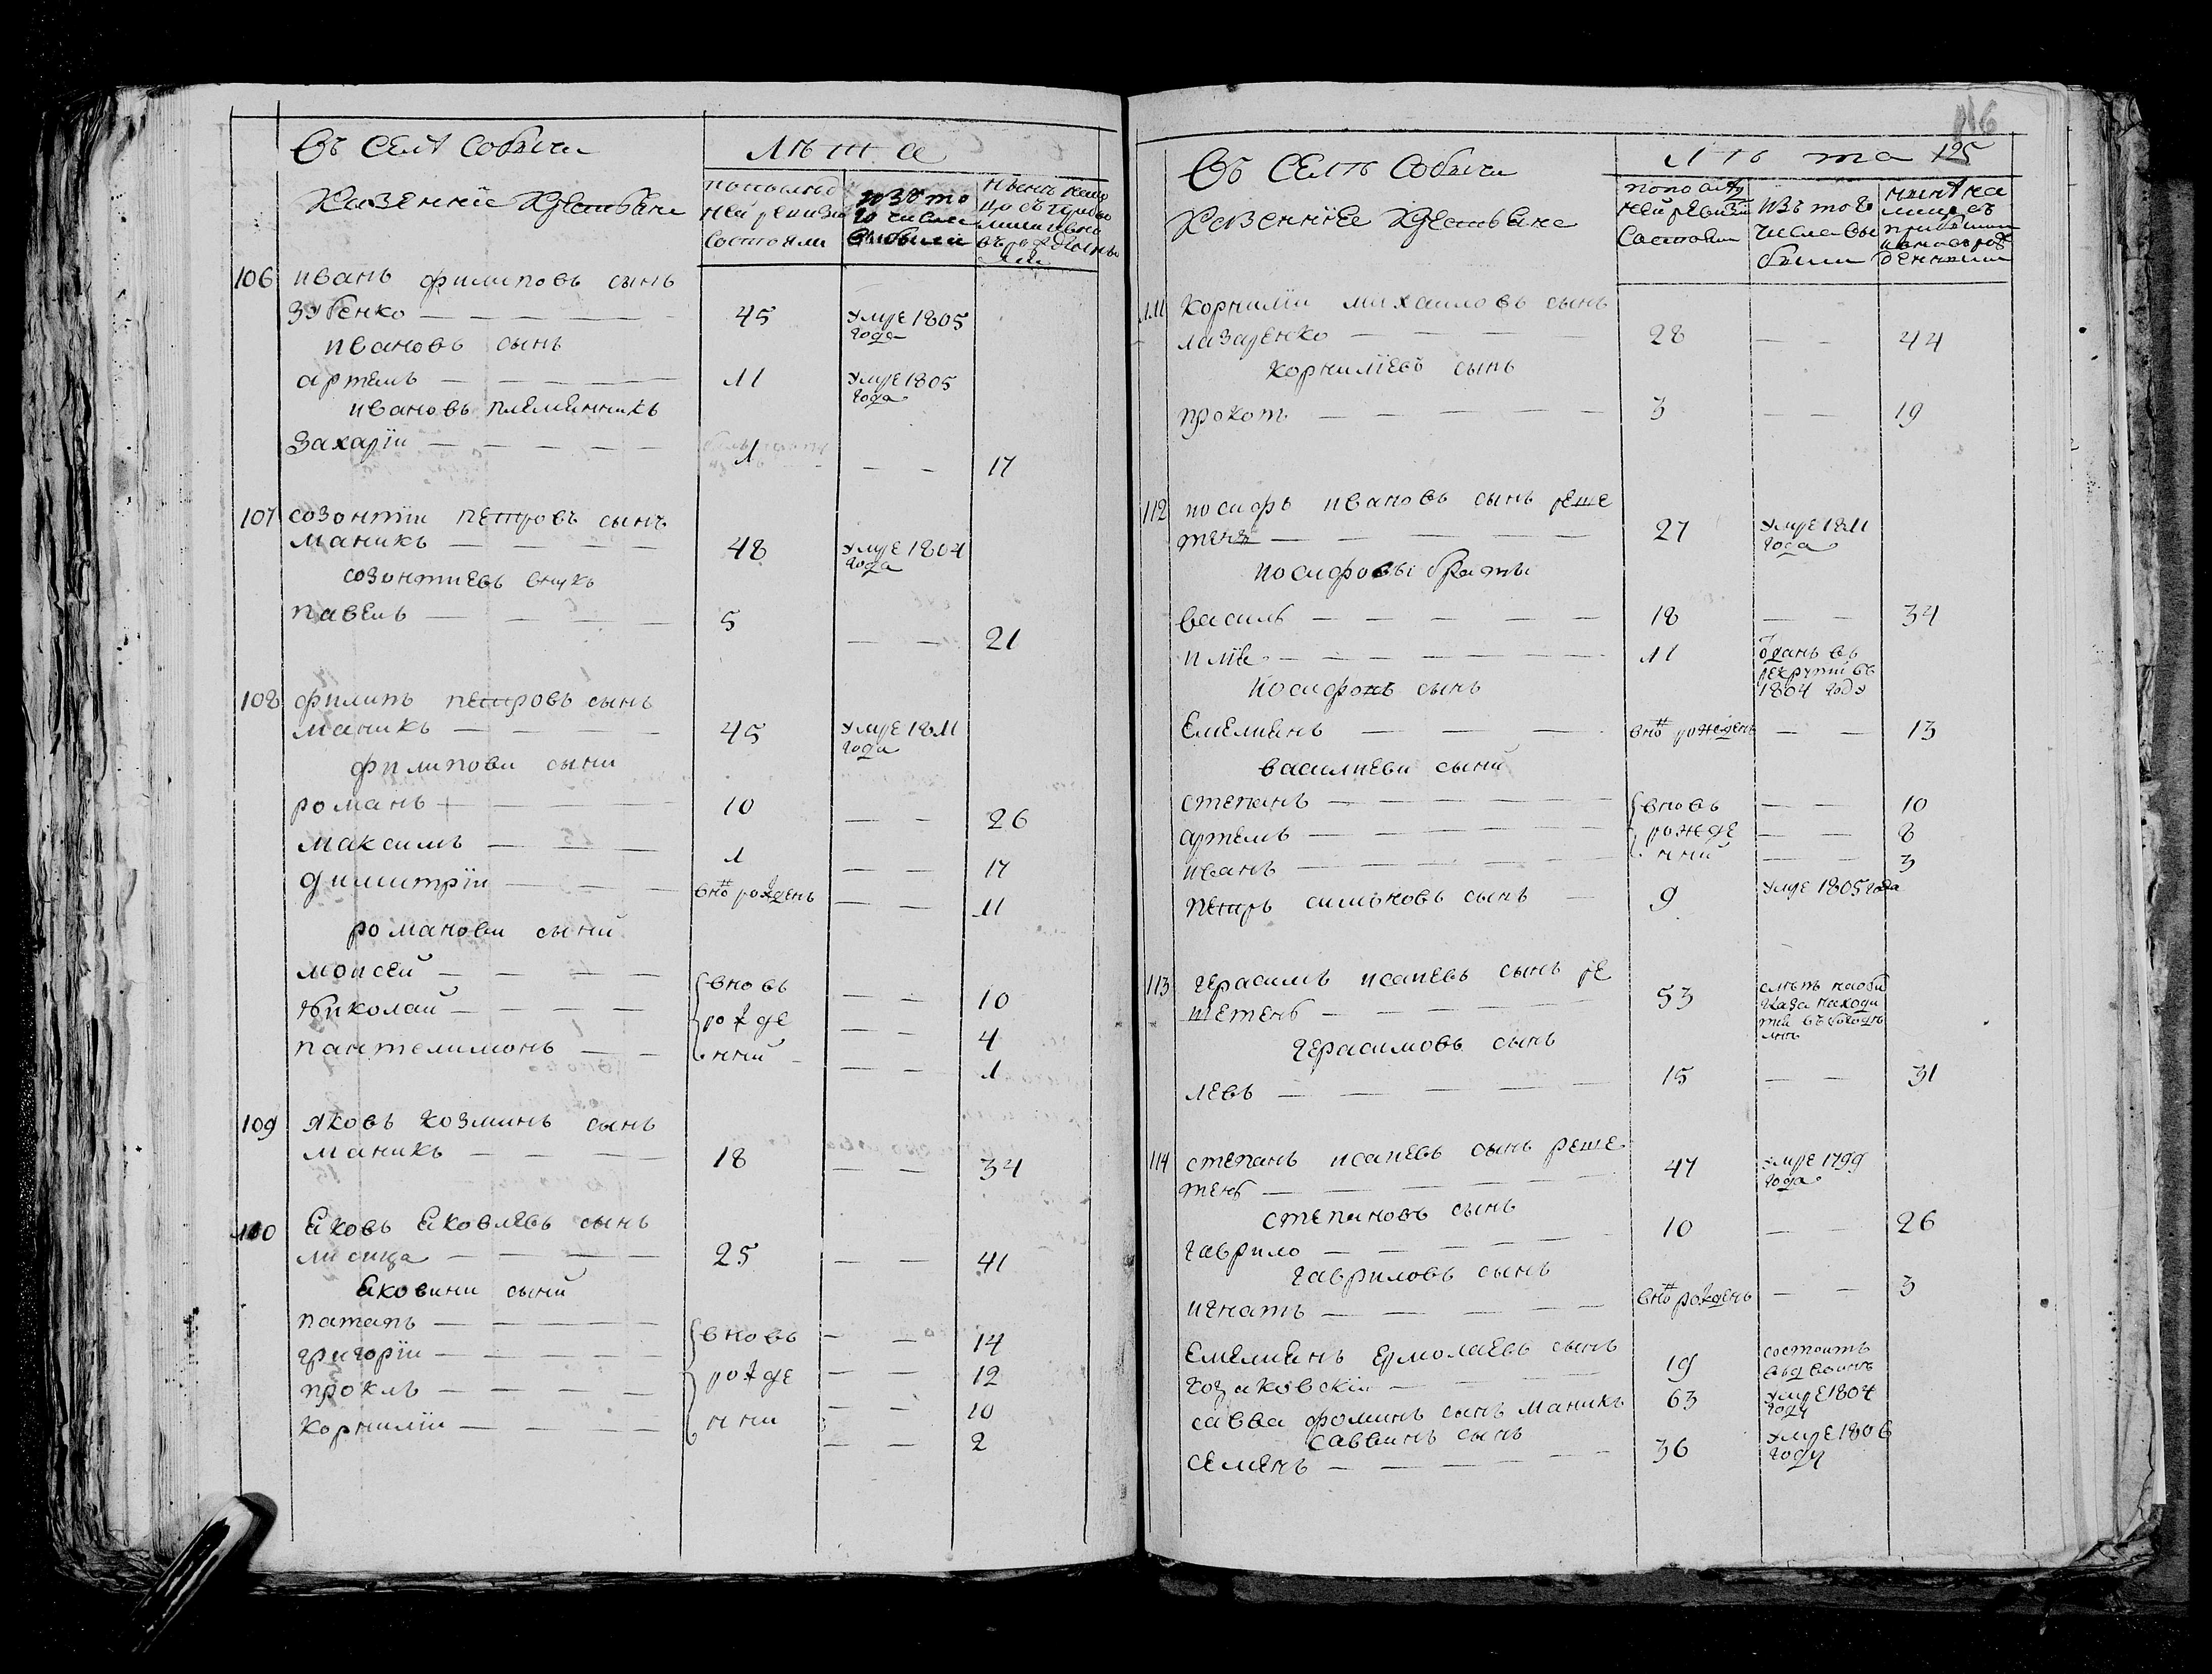 Въ Селѣ Собычи
Казенніе Крестьяне
Лѣта
по послѣд
ней ревизіи
состояли
изъ то
го числа
выбыли
106 иванъ филиповъ сынъ
зубенко — 45 умре 1805
года
ивановъ сынъ
артемъ — 11 умре 1805
года
ивановъ племенникъ
захарїи — 1 — — 17
107 созонтїи петровъ сынъ
маникъ — 48 умре 1804
года
созонтиевъ внукъ
павелъ — 5 — — 21
108 филипъ петровъ сынъ
маникъ — 45 умре 1811
года
филипови сыни
романъ — 10 — — 26
максимъ — 1 — — 17
димитрїи — вно рожденъ — — 11
романови сыни
моисей — вновь — — 10
николаи — рожде — — 4
пантелимонъ — нний — — 1
109 яковъ козминъ сынъ
маникъ — 18 — — 34
110 Яковъ Яковлевъ сынъ
лисица — 25 — — 41
Яковини сыни
патапъ — вновь — — 14
григорїи — рожде — — 12
проклъ — нни — — 10
корнилїи — — — 2
116
125
Въ Селѣ Собычи
Казеннїе Крестьяне
Лѣта
по послѣд
ней ревизїи
Состояли
изъ того
числа вы
были
111 корнилїи михаиловъ сынъ
лазаренко — 28 — — 44
корнилїевъ сынъ
прокопъ — 3 — — 19
112 иосифъ ивановъ сынъ реше
тень — 27 умре 1811
года
иосифовы браты
василь — 18 — — 34
илїя — 11 Отданъ въ
рекруты въ
1804 году
иосифовъ сынъ
Емелиянъ — вно рожденъ — — 13
василиеви сыни
степанъ — вновь — — 10
артемъ — рожде — — 8
иванъ — нний — — 3
петръ симоновъ сынъ — 9 умре 1805 года
113 герасимъ исаиевъ сынъ ре
шетень — 53
герасимовъ сынъ
левъ — 15 — — 31
114 степанъ исаиевъ сынъ реше
тень — 47 умре 1799
года
степановъ сынъ
гаврило — 10 — — 26
гавриловъ сынъ
игнатъ — вно рожденъ — — 3
Емелиянъ Ермолаевъ сынъ
козаковскїи — 19 состоитъ
савва фоминъ сынъ маникъ 63 умре 1804
году
саввинъ сынъ
семенъ — 36 умре 1806
году